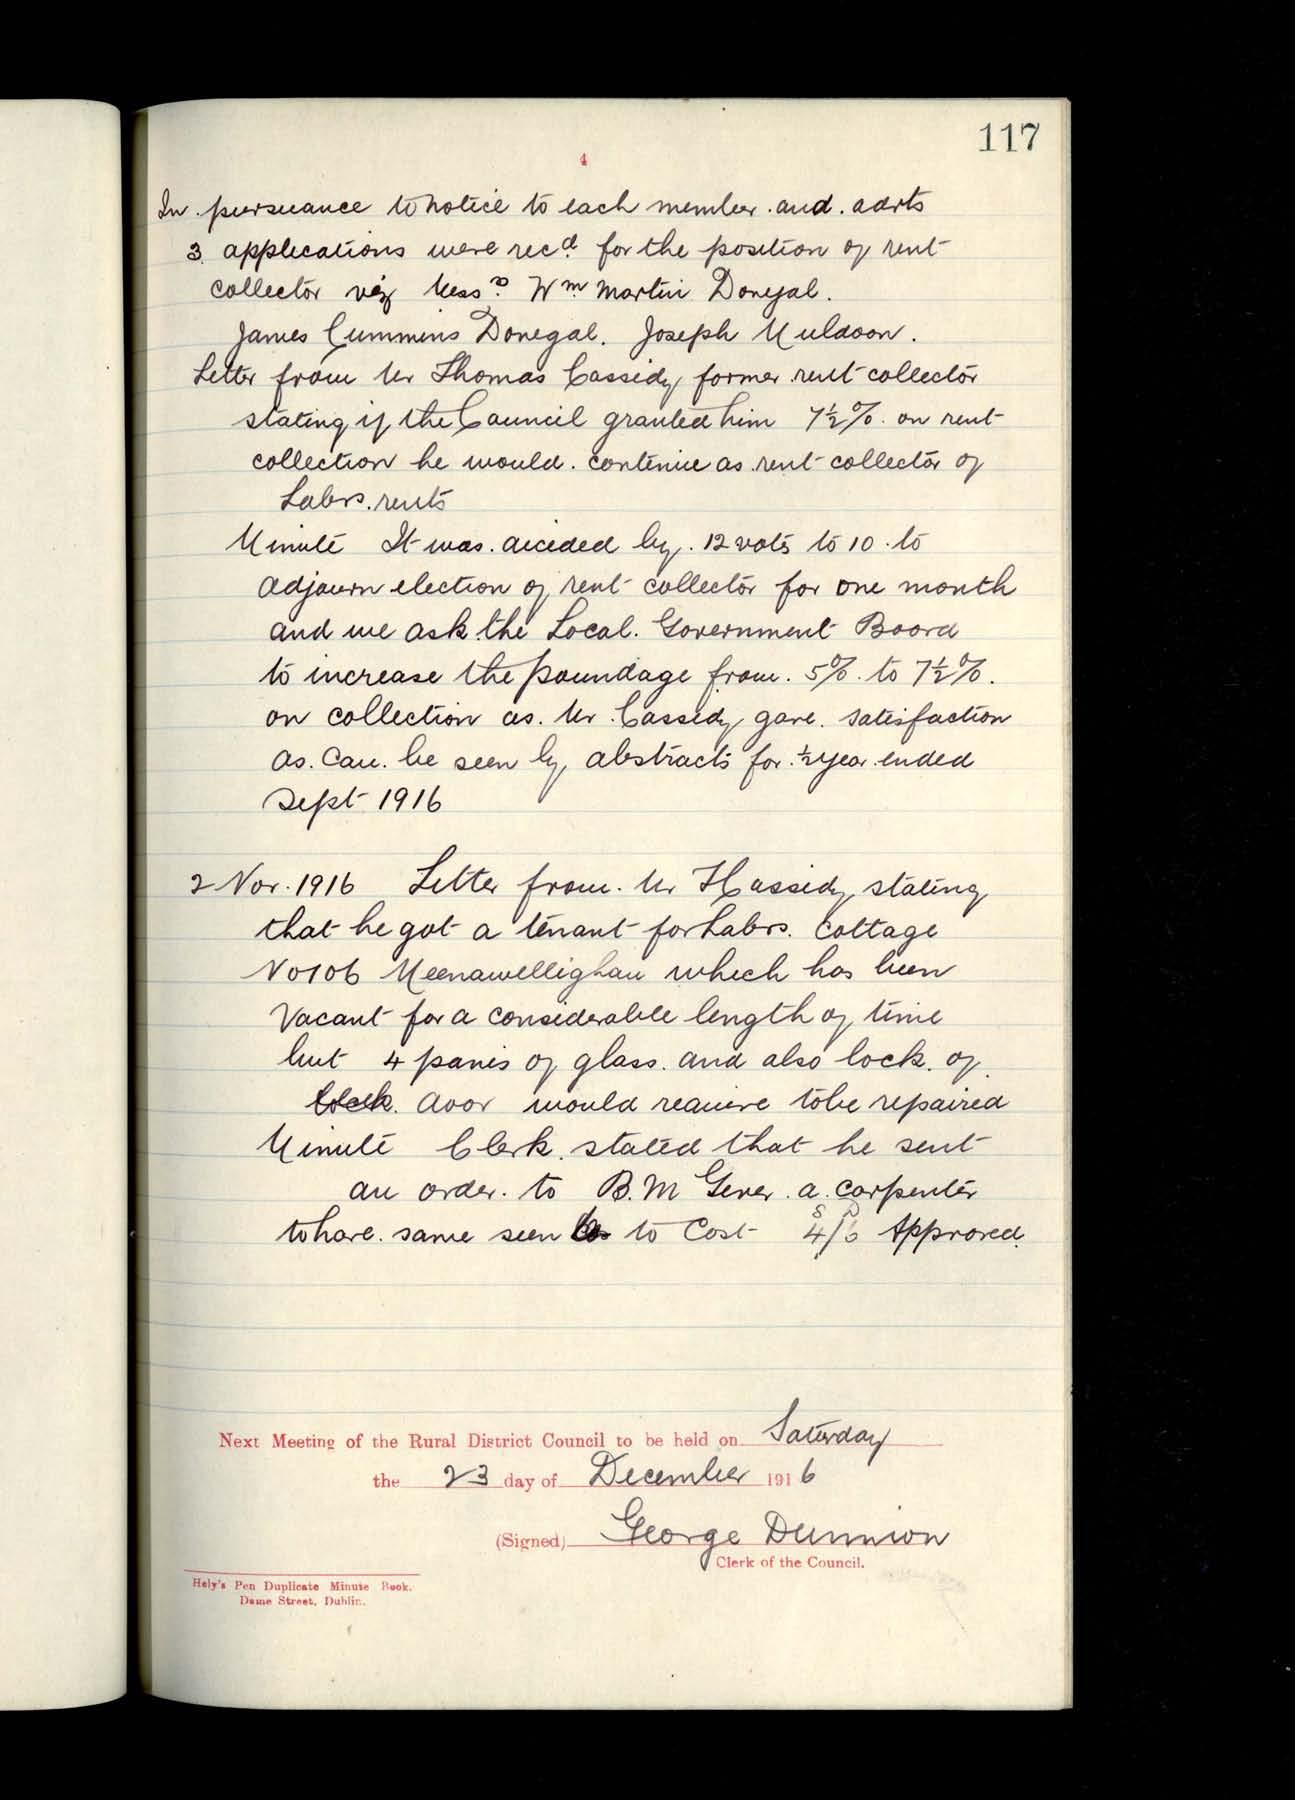 117
4
In pursuance to notice to each member and advts
3 applications were recd for the position of rent
collector viz Messrs Wm Martin Donegal.
James Cummins Donegal. Joseph Muldoon.
Letter from Mr Thomas Cassidy former rent collector
stating if the Council granted him 7½% on rent
collection he would continue as rent collector of
Labrs. rents
Minute It was decided by 12 votes to 10 to
adjourn election of rent collector for one month
and we ask the Local Government Board
to increase the poundage from 5% to 7½%.
on collection as Mr Cassidy gave satisfaction
as can be seen by abstracts for ½ year ended
Sept 1916
2 Nov. 1916 Letter from Mr T Cassidy stating
that he got a tenant for Labrs. Cottage
No 106 Meenawellighan which has been
Vacant for a considerable length of time
but 4 panes of glass and also lock of
door would require to be repaired
Minute Clerk stated that he sent
an order to B. McGever a carpenter
to have same seen to Cost 4/6 Approved
Next Meeting of the Rural District Council to be held on Saturday
the 23 day of December 1916
(Signed) George Dunnion
Clerk of the Council.
Hely's Pen Duplicate Minute Book.
Dame Street, Dublin.